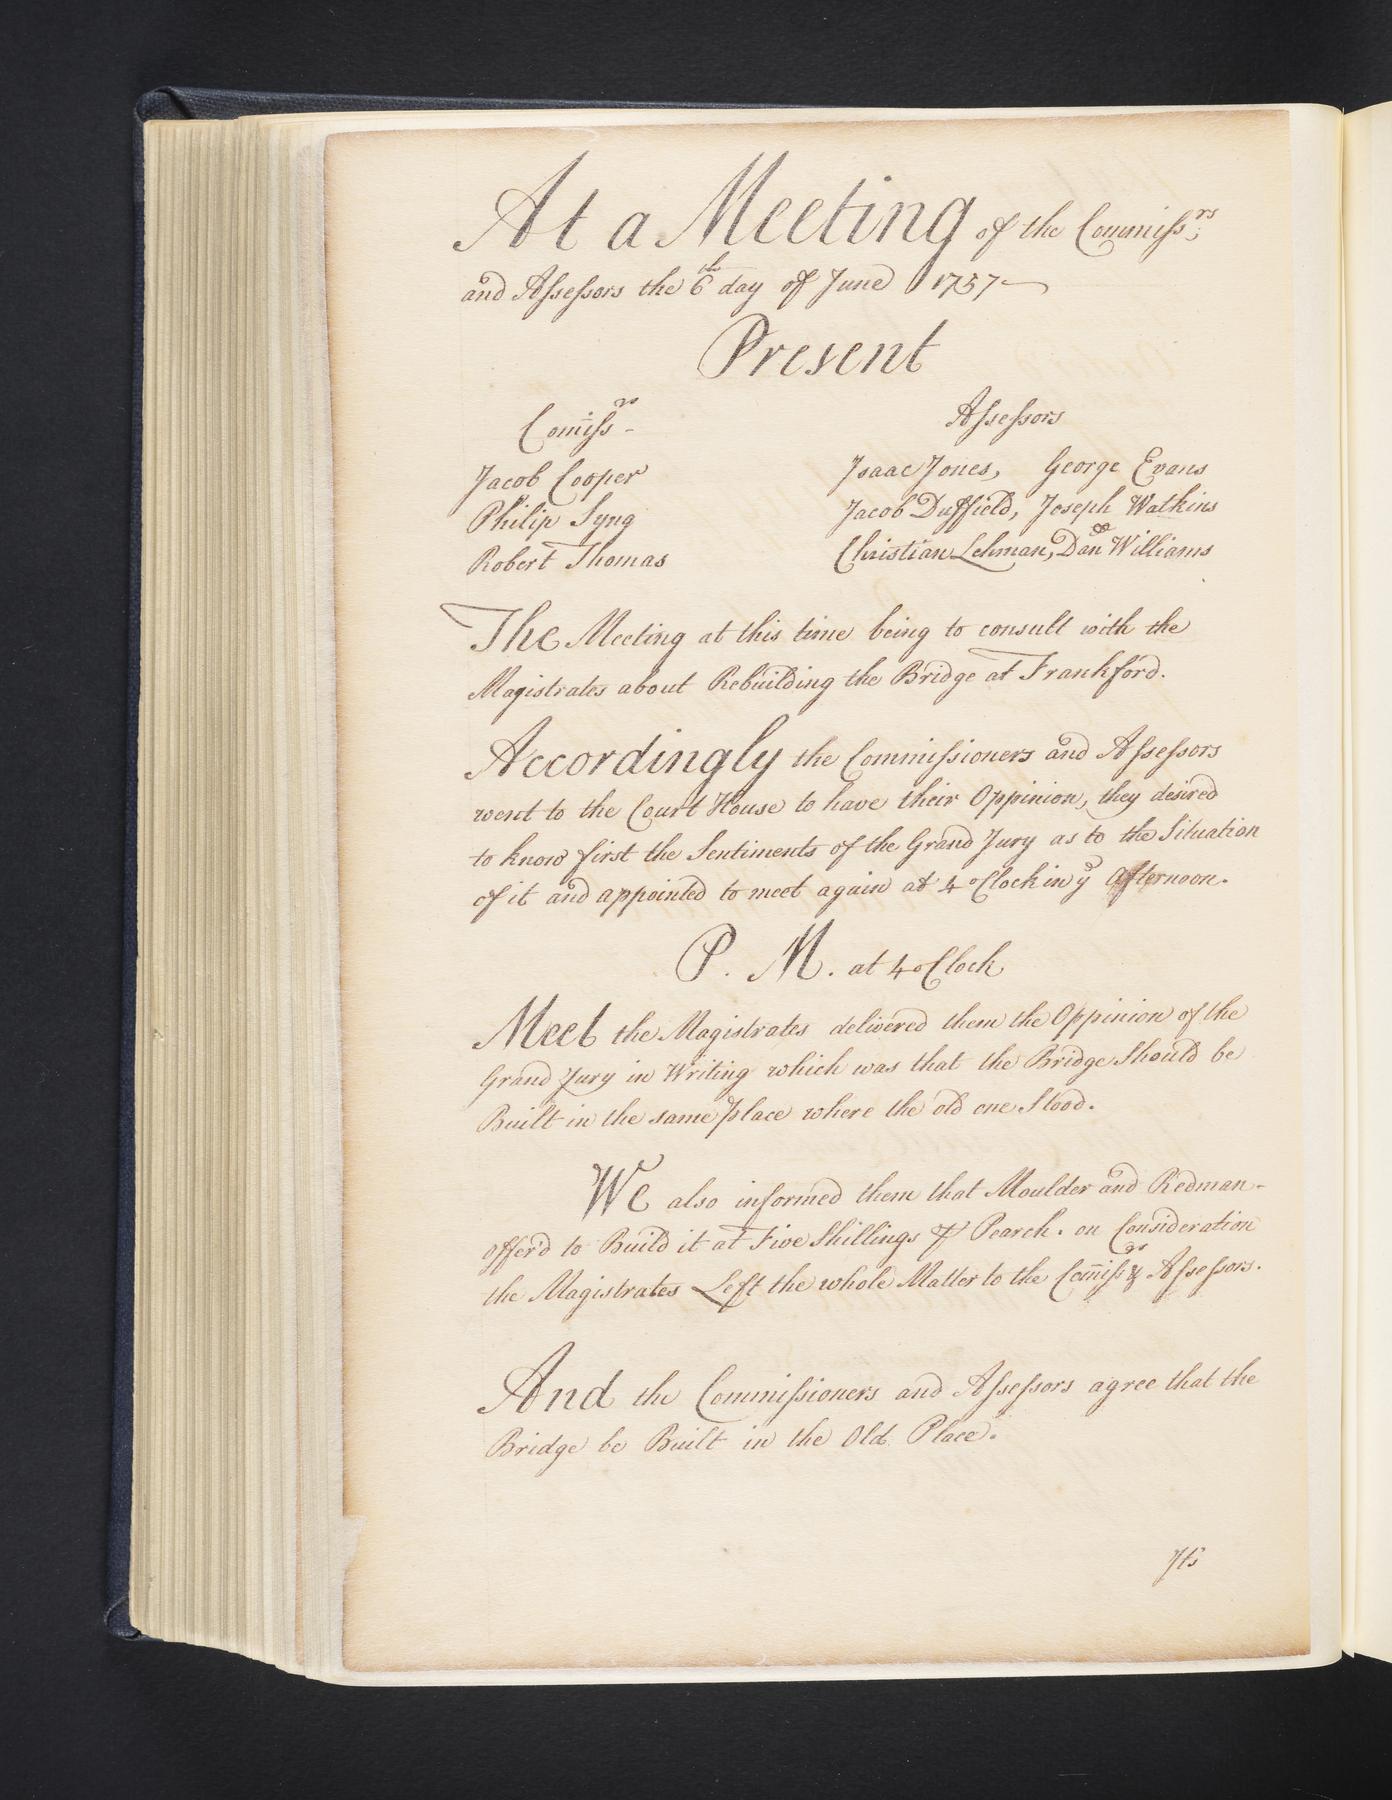 At a Meeting of the Commissrs;
and Assessors the 6th day of June 1757
Present
Comissrs - Assessors
Jacob Cooper Isaac Jones, George Evans
Philip Syng Jacob Duffield, Joseph Watkins
Robert Thomas Christian Lehman, Dan Williams
The Meeting at this time being to consult with the
Magistrates about Rebuilding the Bridge at Frankford.
Accordingly the Commissioners and Assessors
went to the Court House to have their Oppinion, they desired
to know first the Sentiments of the Grand Jury as to the Situation
of it and appointed to meet again at 4 oClock in ye afternoon.
P. M. at 4 oClock
Meet the Magistrates delivered them the Oppinion of the
Grand Jury in Writing which was that the Bridge Should be
Built in the same place where the old one Stood.
We also informed them that Moulder and Redman-
offer'd to Build it at Five Shillings ⅌ Pearch. on Consideration
the Magistrates Left the whole Matter to the Comissrs & Assessors.
And the Commissioners and Assessors agree that the
Bridge be Built in the Old Place.